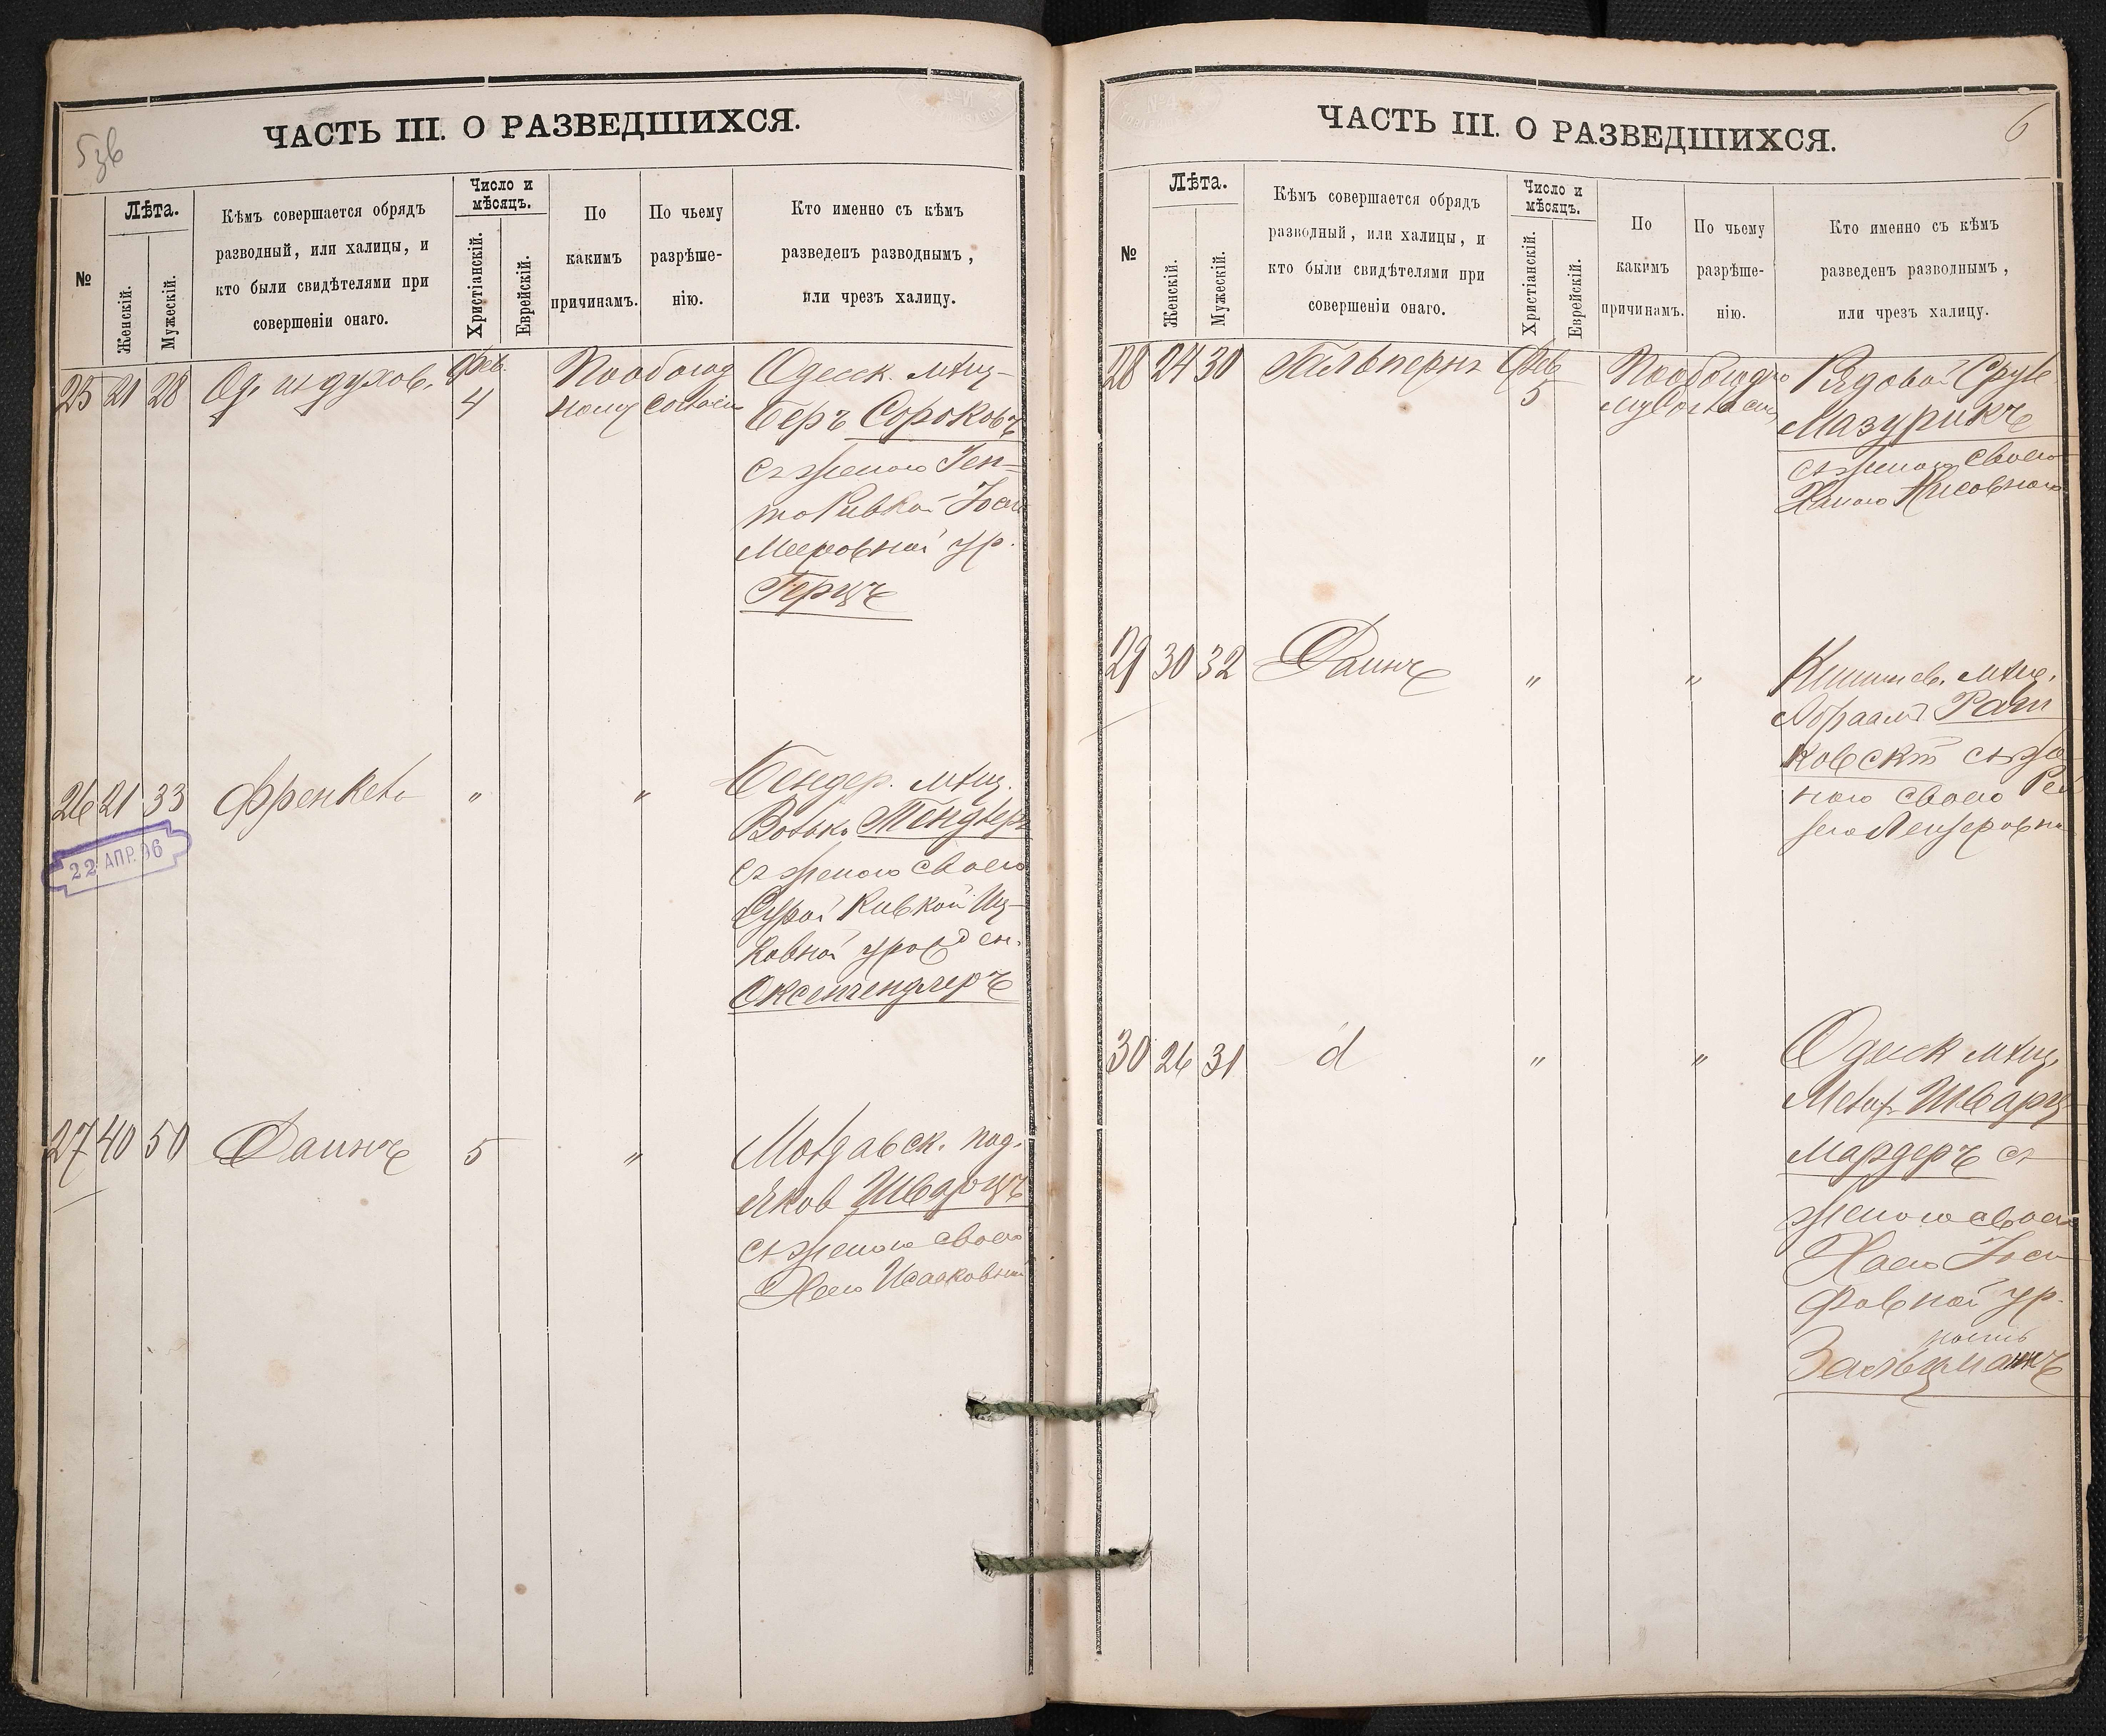 5 зв
ЧАСТЬ III. О РАЗВЕДШИХСЯ.
№
Лѣта.
Женскій.
Мужескій.
Кѣмъ совершается обрядъ
разводный, или халицы, и
кто были свидѣтелями при
совершеніи онаго.
Число и
мѣсяцъ.
Христіанскій.
Еврейскій.
По
какимъ
причинамъ.
По чьему
разрѣше-
нію.
Кто именно съ кѣмъ
разведенъ разводнымъ,
или чрезъ халицу.
25 21 28 Од. духов. Фев. 4
По обоюд
ному согласію
Одесск. мѣщ-
Беръ Сороковъ
съ женою Ген-
Ривкой
Мееровной ур.
Герцъ
26 21 33 Френкель " "
22 АПР. 96
Бендер. мѣщ.
Волько Тендлеръ
съ женою своею
Сурой Ривкой Иц-
ковной урожден.
Оксенгендлеръ
27 40 50 Фаинъ 5 "
Молдавск. под.
Яков Шварцъ
съ женою своею
Хаею Исааковной
6
ЧАСТЬ III. О РАЗВЕДШИХСЯ.
№
Лѣта.
Женскій.
Мужескій.
Кѣмъ совершается обрядъ
разводный, или халицы, и
кто были свидѣтелями при
совершеніи онаго.
Число и
мѣсяцъ.
Христіанскій.
Еврейскій.
По
какимъ
причинамъ.
По чьему
разрѣше-
нію.
Кто именно съ кѣмъ
разведенъ разводнымъ,
или чрезъ халицу.
28 24 30 Гальпернъ Фев 5
По обоюдно
му согласію
Рядовой Сруль
Мазурикъ
съ женою своею
Ханою
29 30 32 Фаинъ " "
Кишинев. мѣщ.
Абраамъ Раш
ковскій съ же
ною своею Рей
зею Лейзеровно
30 26 31 d " "
Одесск мѣщ.
Шварц-
Мардеръ съ
женою своею
Хаею Іоси
фовной ур.
Зальцманъ